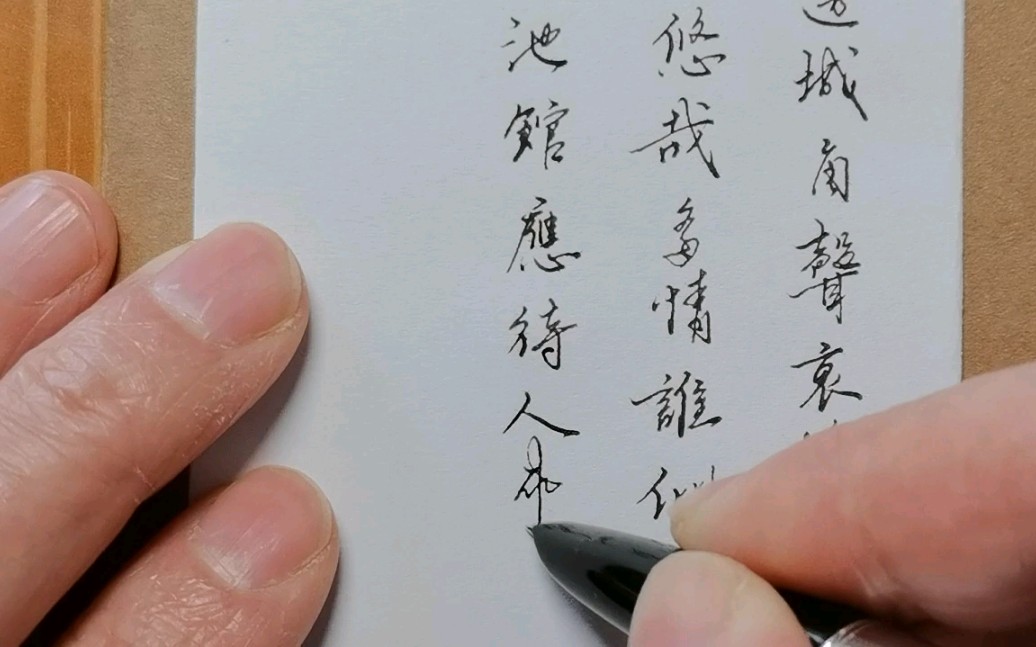 边城角聲哀
悠哉多情誰似
池館應待人來